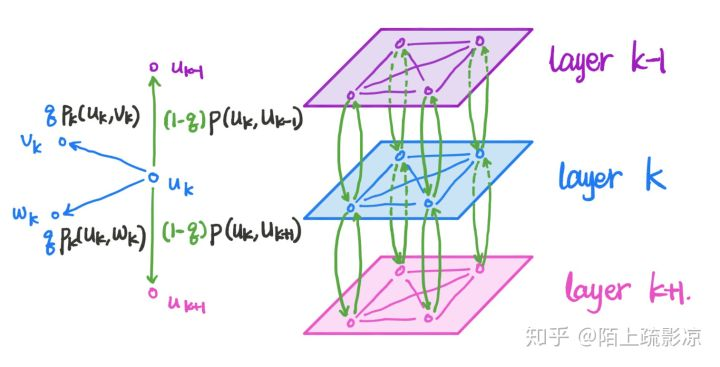 u_{k-1}
q P_k(u_k, v_k)
(1-q) p(u_k, u_{k-1})
v_k
u_k
w_k
q P_k(u_k, w_k)
(1-q) p(u_k, u_{k+1})
u_{k+1}
layer k-1
layer k
layer k+1.
知乎 @陌上疏影凉